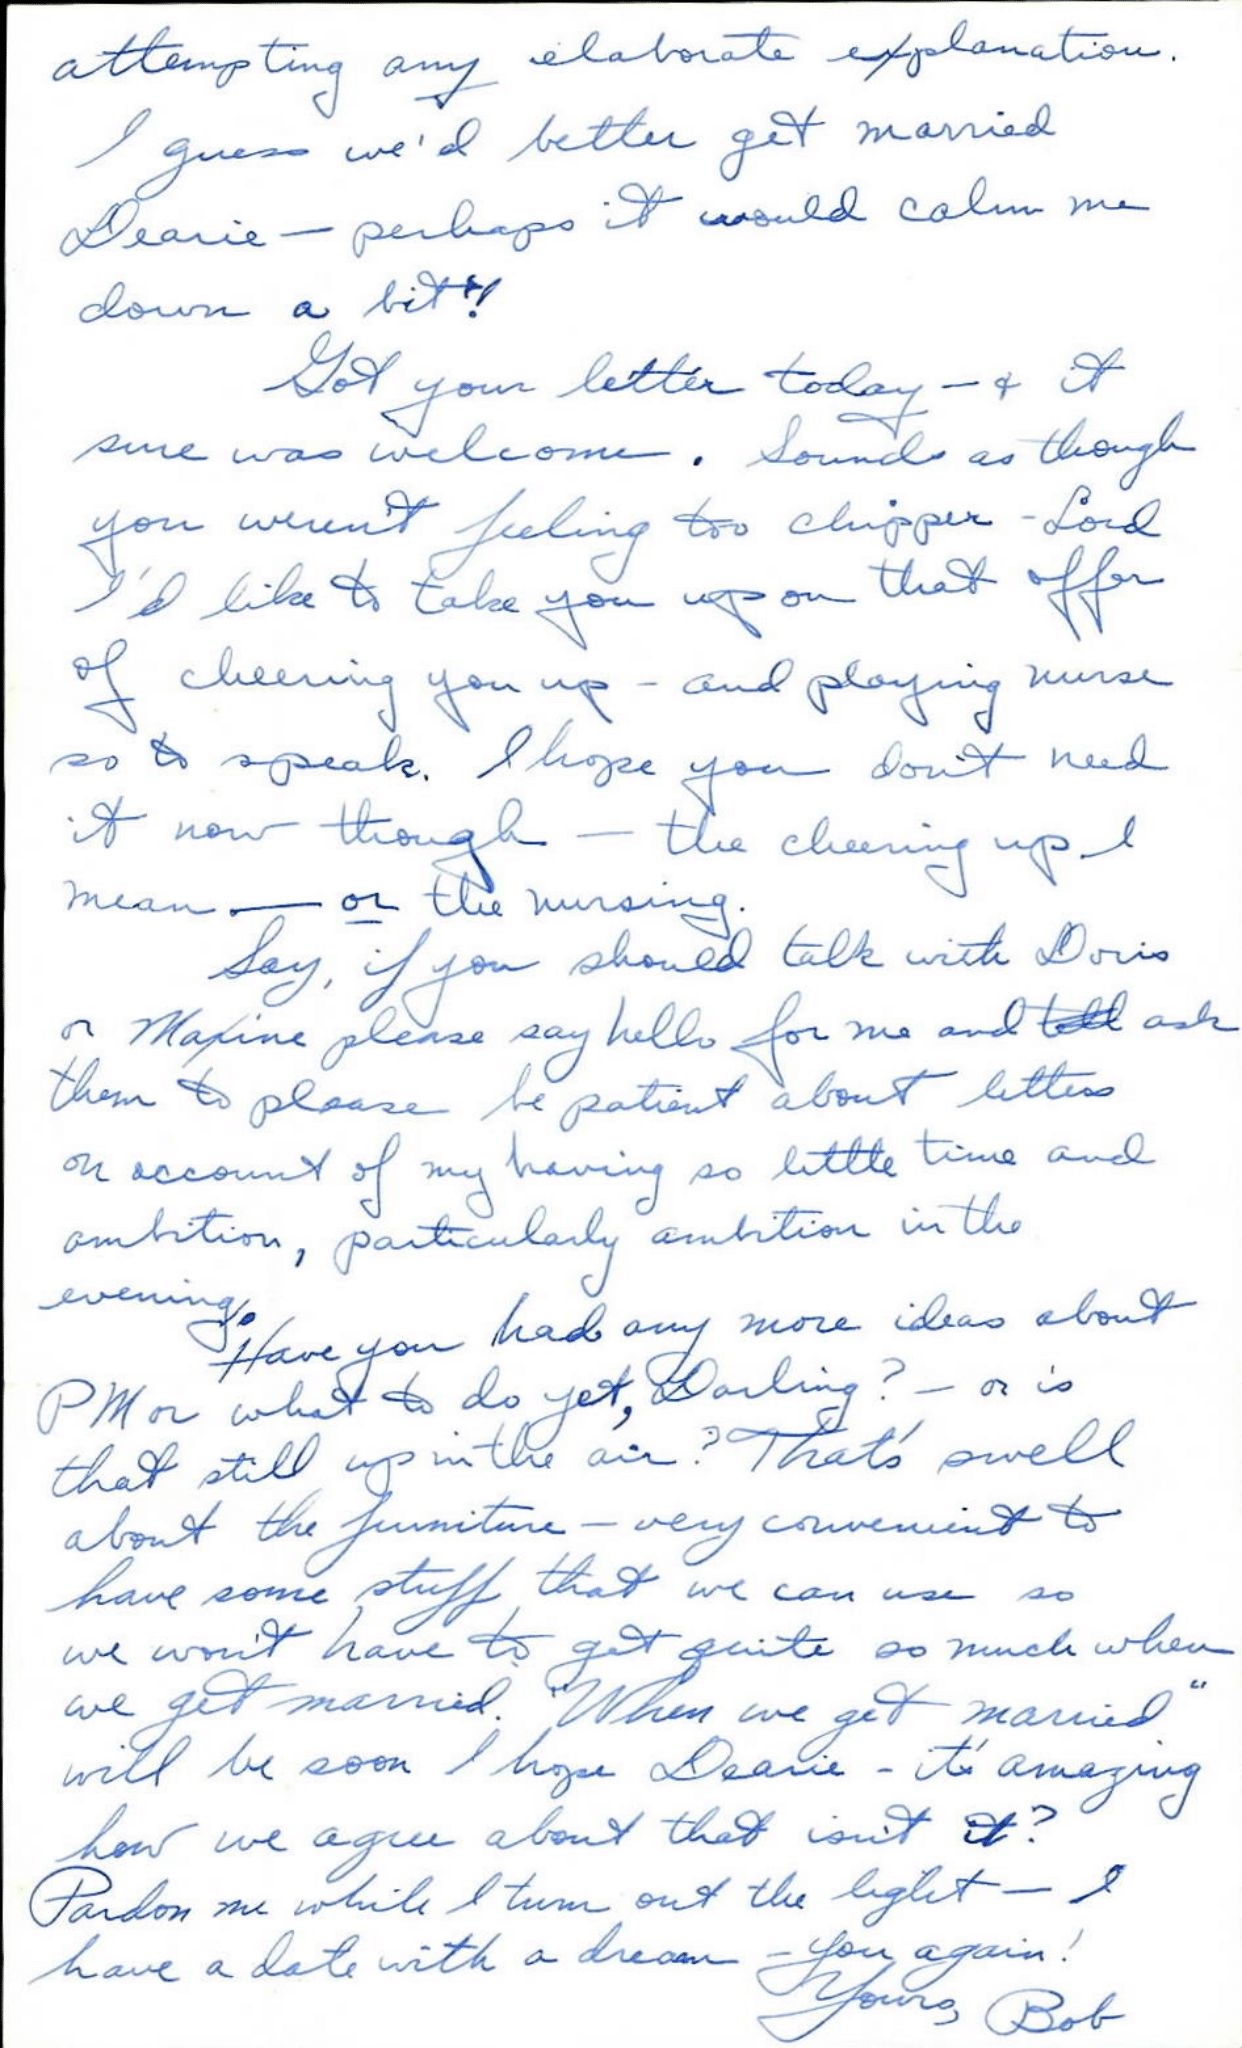 attempting any elaborate explanation.
I guess we'd better get married
Dearie — perhaps it would calm me
down a bit!!
Got your letter today — & it
sure was welcome. Sounds as though
you weren't feeling too chipper - Lord
I'd like to take you up on that offer
of cheering you up - and playing nurse
so to speak. I hope you don't need
it now though — the cheering up I
mean — or the nursing.
Say, if you should talk with Doris
or Maxine please say hello for me and tell ask
them to please be patient about letters
on account of my having so little time and
ambition, particularly ambition in the
evening.
Have you had any more ideas about
PM or what to do yet, Darling? - or is
that still up in the air? That's swell
about the furniture - very convenient to
have some stuff that we can use so
we won't have to get quite so much when
we get married. "When we get married"
will be soon I hope Dearie - it's amazing
how we agree about that isn't it?
Pardon me while I turn out the light — I
have a date with a dream - you again!
Yours, Bob